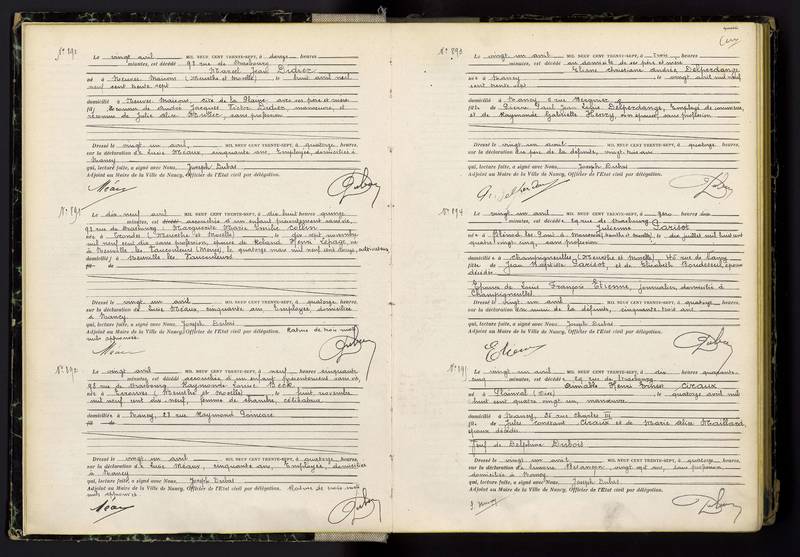 N° 890
Le vingt avril MIL NEUF CENT TRENTE-SEPT, à douze heures
minutes, est décédé 92 rue de Strasbourg
Marcel Jean Didier
né à Neuves Maisons (Meurthe et Moselle) le huit avril neuf
cent trente sept
domicilié à Neuves Maisons, avec ses père et mère
André Jacques Didier, manœuvre, et
Julie Alice sans profession
Dressé le vingt un avril MIL NEUF CENT TRENTE-SEPT, à quatorze heures,
sur la déclaration de Lucie Méaux, cinquante ans, Employée, domiciliée à
Nancy
qui, lecture faite, a signé avec Nous, Joseph Dubas
Adjoint au Maire de la Ville de Nancy, Officier de l'Etat civil par délégation.
Le dix neuf avril MIL NEUF CENT TRENTE-SEPT, à dix huit heures quinze
minutes, accouchée d'un enfant présentement sans vie,
92 rue de Strasbourg : Marguerite Marie Emilie Collin
née à (Meurthe et Moselle) le dix sept novembre
mil neuf cent dix sans profession, épouse de Roland Henri Lepage, né
à Neuville les Vaucouleurs (Meuse) le quatorze mars mil neuf cent douze,
domiciliés à Neuville les Vaucouleurs
fils de
Dressé le vingt un avril MIL NEUF CENT TRENTE-SEPT, à quatorze heures,
sur la déclaration de Lucie Méaux, cinquante ans, Employée, domiciliée
à Nancy
qui, lecture faite, a signé avec Nous, Joseph Dubas
Adjoint au Maire de la Ville de Nancy, Officier de l'Etat civil par délégation. Rature de trois mots
nuls approuvée
N° 892
Le vingt avril MIL NEUF CENT TRENTE-SEPT, à neuf heures cinquante
minutes, accouchée d'un enfant présentement sans vie,
92 rue de Strasbourg Raymonde Louise Beck
née à (Meurthe et Moselle) le huit novembre
mil neuf cent dix neuf, femme de chambre, célibataire
domiciliée à Nancy, 28 rue Raymond Poincaré
fils de
Dressé le vingt un avril MIL NEUF CENT TRENTE-SEPT, à quatorze heures,
sur la déclaration de Lucie Méaux, cinquante ans, Employée, domiciliée
à Nancy
qui, lecture faite, a signé avec Nous, Joseph Dubas
Adjoint au Maire de la Ville de Nancy, Officier de l'Etat civil par délégation. Rature de trois mots
nuls approuvée
N° 893
Le vingt un avril MIL NEUF CENT TRENTE-SEPT, à trois heures
minutes, est décédée au domicile de ses père et mère
Eliane Christiane Andrée Delperdange
née à Nancy le vingt avril mil neuf
cent trente sept
domiciliée à Nancy 2 rue
fille de Pierre Paul Jean Louis Delperdange, Employé de commerce,
et de Raymonde Gabrielle Henry, son épouse, sans profession
Dressé le vingt un avril MIL NEUF CENT TRENTE-SEPT, à quatorze heures,
sur la déclaration du père de la défunte, vingt trois ans
qui, lecture faite, a signé avec Nous, Joseph Dubas
Adjoint au Maire de la Ville de Nancy, Officier de l'Etat civil par délégation.
N° 894
Le vingt un avril MIL NEUF CENT TRENTE-SEPT, à zéro heures dix
minutes, est décédée 29 rue de Strasbourg
Julienne Parisot
née à Blénod les Pont à Mousson (Meurthe et Moselle) le dix juillet mil huit cent
quatre vingt cinq, sans profession
domiciliée à Champigneulles (Meurthe et Moselle), 40 rue de Nancy
fille de Jean Baptiste Parisot, et de Elisabeth époux
décédés
Epouse de Louis François Etienne, journalier, domicilié à
Champigneulles
Dressé le vingt un avril MIL NEUF CENT TRENTE-SEPT, à quatorze heures,
sur la déclaration du mari de la défunte, cinquante trois ans
qui, lecture faite, a signé avec Nous, Joseph Dubas
Adjoint au Maire de la Ville de Nancy, Officier de l'Etat civil par délégation.
Etienne
Le vingt avril MIL NEUF CENT TRENTE-SEPT, à dix heures quarante-
cinq minutes, est décédé 29 rue de Strasbourg
Amable Henri Ernest Ciraux
né à le quatorze avril mil
huit cent quatre vingt un, manœuvre
domicilié à Nancy, 35 rue Charles III
fils de Jules Constant Ciraux et de Marie Alice Maillard,
époux décédés
Veuf de Delphine Dubois
Dressé le vingt un avril MIL NEUF CENT TRENTE-SEPT, à quatorze heures,
sur la déclaration de Simone vingt sept ans, sans profession
domiciliée à Nancy
qui, lecture faite, a signé avec Nous, Joseph Dubas
Adjoint au Maire de la Ville de Nancy, Officier de l'Etat civil par délégation.